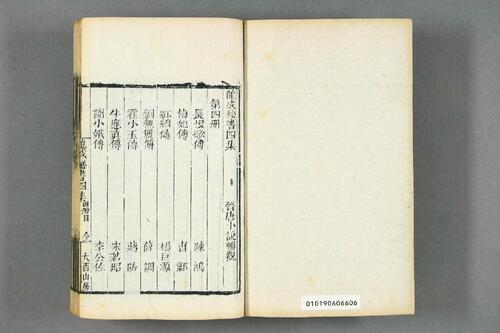 龍威秘書四集 晉唐小說暢觀
第四册
長恨歌傳 陳鴻
梅妃傳 曹鄴
紅線傳 楊巨源
劉無雙傳 薛調
霍小玉傳 蔣防
牛應貞傳 宋若昭
謝小娥傳 李公佐
龍威秘書四集 大酉山房
010190606606